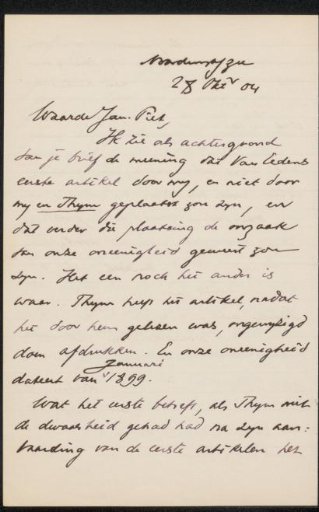 Noordwijk/Zee
28 Oktr 04
Waarde Jan-Piet,
Ik zie als achtergrond
van je brief de meening dat Van Eedens
eerste artikel door my, en niet door
my en Thym geplaatst zou zyn, en
dat verder die plaatsing de oorzaak
van onze oneenigheid geweest zou
zyn. Het een noch het ander is
waar. Thym heeft het artikel, nadat
het door hem gelezen was, ongewyzigd
doen afdrukken. En onze oneenigheid
dateert van Januari 1899.
Wat het eerste betreft, als Thym niet
de dwaasheid gehad had na zyn aan-
vaarding van de eerste artikelen het